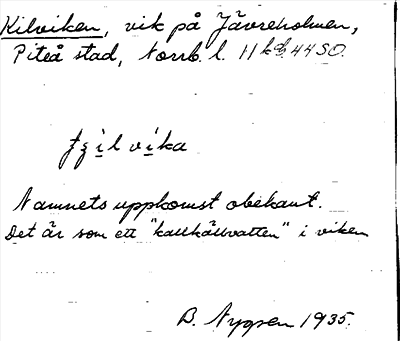 Kilviken, vik på Jävreholmen,
Piteå stad, Norrb. l. 11 kdr. 44 SO.
tʒilvika
Namnets uppkomst obekant.
Det är som ett "kallkällvatten" i viken
B. Nygren 1935.